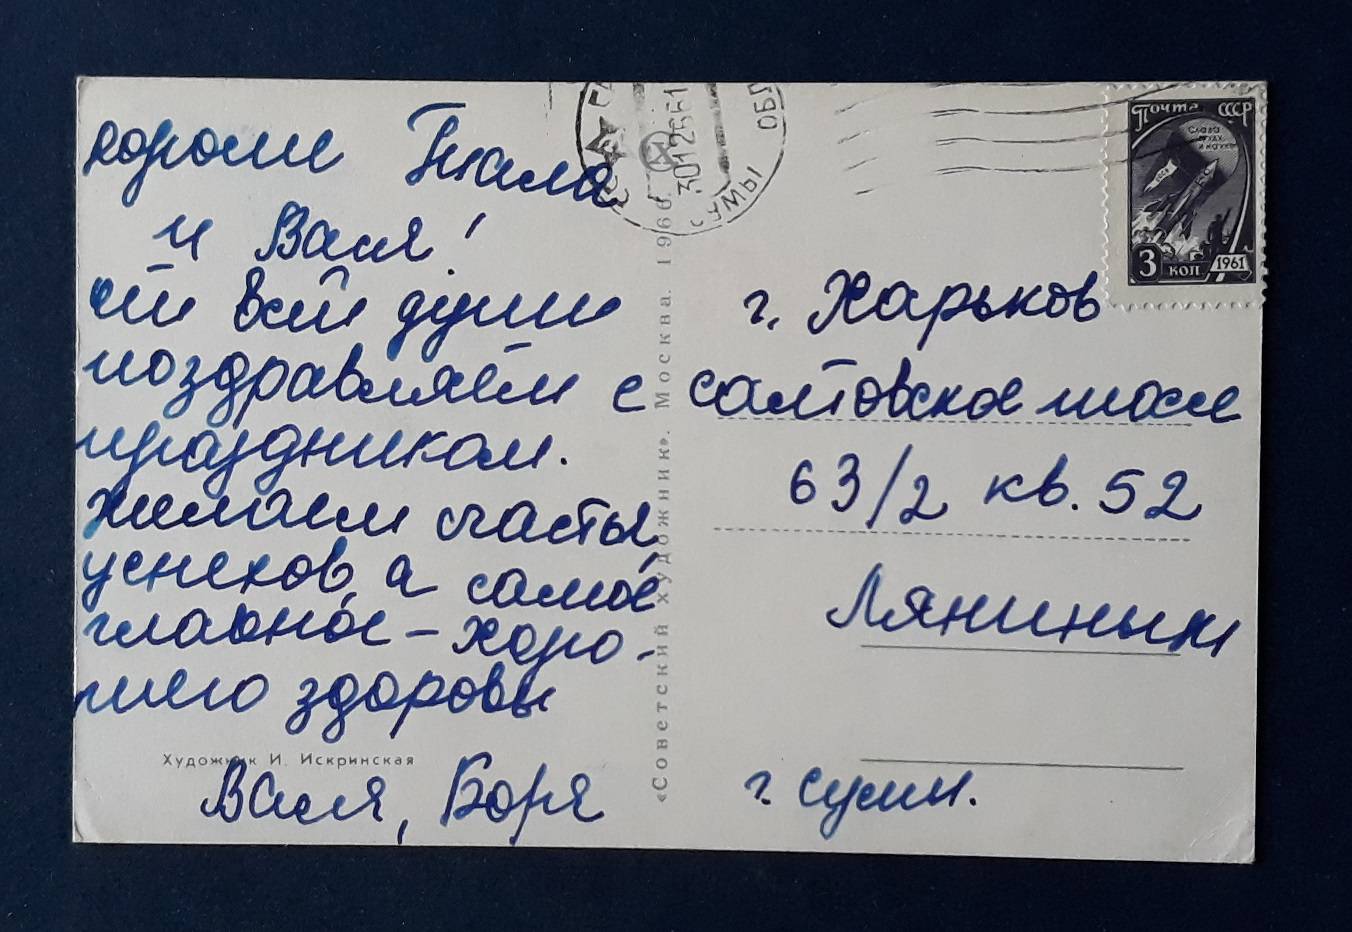 хорошие Ттала
и Валя!
от всей души
поздравляем с
праздником.
желаем счастья,
успехов, а самое
главное – хоро-
шего здоровья
Художник И. Искринская
Валя, Боря
«Советский художник». Москва. 1966.
301266
СУМЫ ОБЛ
Почта СССР
Слава
труду
и науке
3 коп 1961
г. Харьков
салтовское шоссе
63/2 кв. 52
Ляниным
г. Сумы.